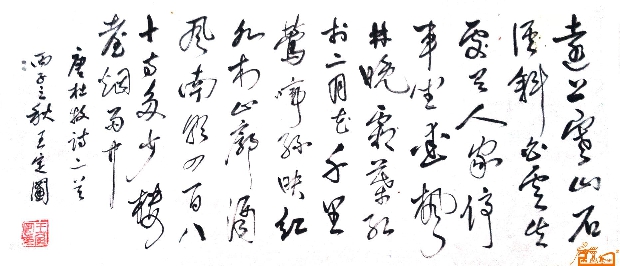 遠上寒山石
徑斜白雲生
處有人家停
車坐愛楓
林晚霜葉紅
於二月花千里
鶯啼綠映紅
水村山郭酒
風南朝四百八
十寺多少樓
臺煙雨中
唐杜牧詩二首
丙子之秋王定國